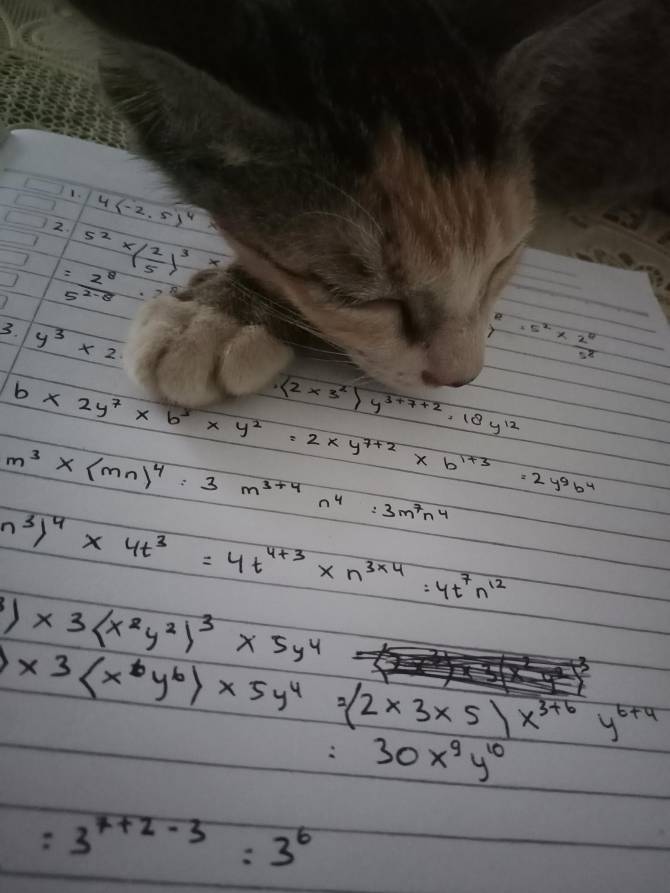 1. 4(-2.5)⁴
2. 5² × (2/5)³ ×
= 2⁸/5²⁻⁸ : 5² × 2⁸/5⁸
3. y³ × 2 (2 × 3²) y³⁺⁷⁺² = 18y¹²
b × 2y⁷ × b³ × y² = 2 × y⁷⁺² × b¹⁺³ = 2y⁹b⁴
m³ × (mn)⁴ : 3 m³⁺⁴ n⁴ : 3m⁷n⁴
n³)⁴ × 4t³ = 4t⁴⁺³ × n³ˣ⁴ : 4t⁷n¹²
³) × 3(x²y²)³ × 5y⁴
) × 3(x⁶y⁶) × 5y⁴ = (2 × 3 × 5) x³⁺⁶ y⁶⁺⁴
: 30x⁹y¹⁰
: 3⁷⁺²⁻³ : 3⁶